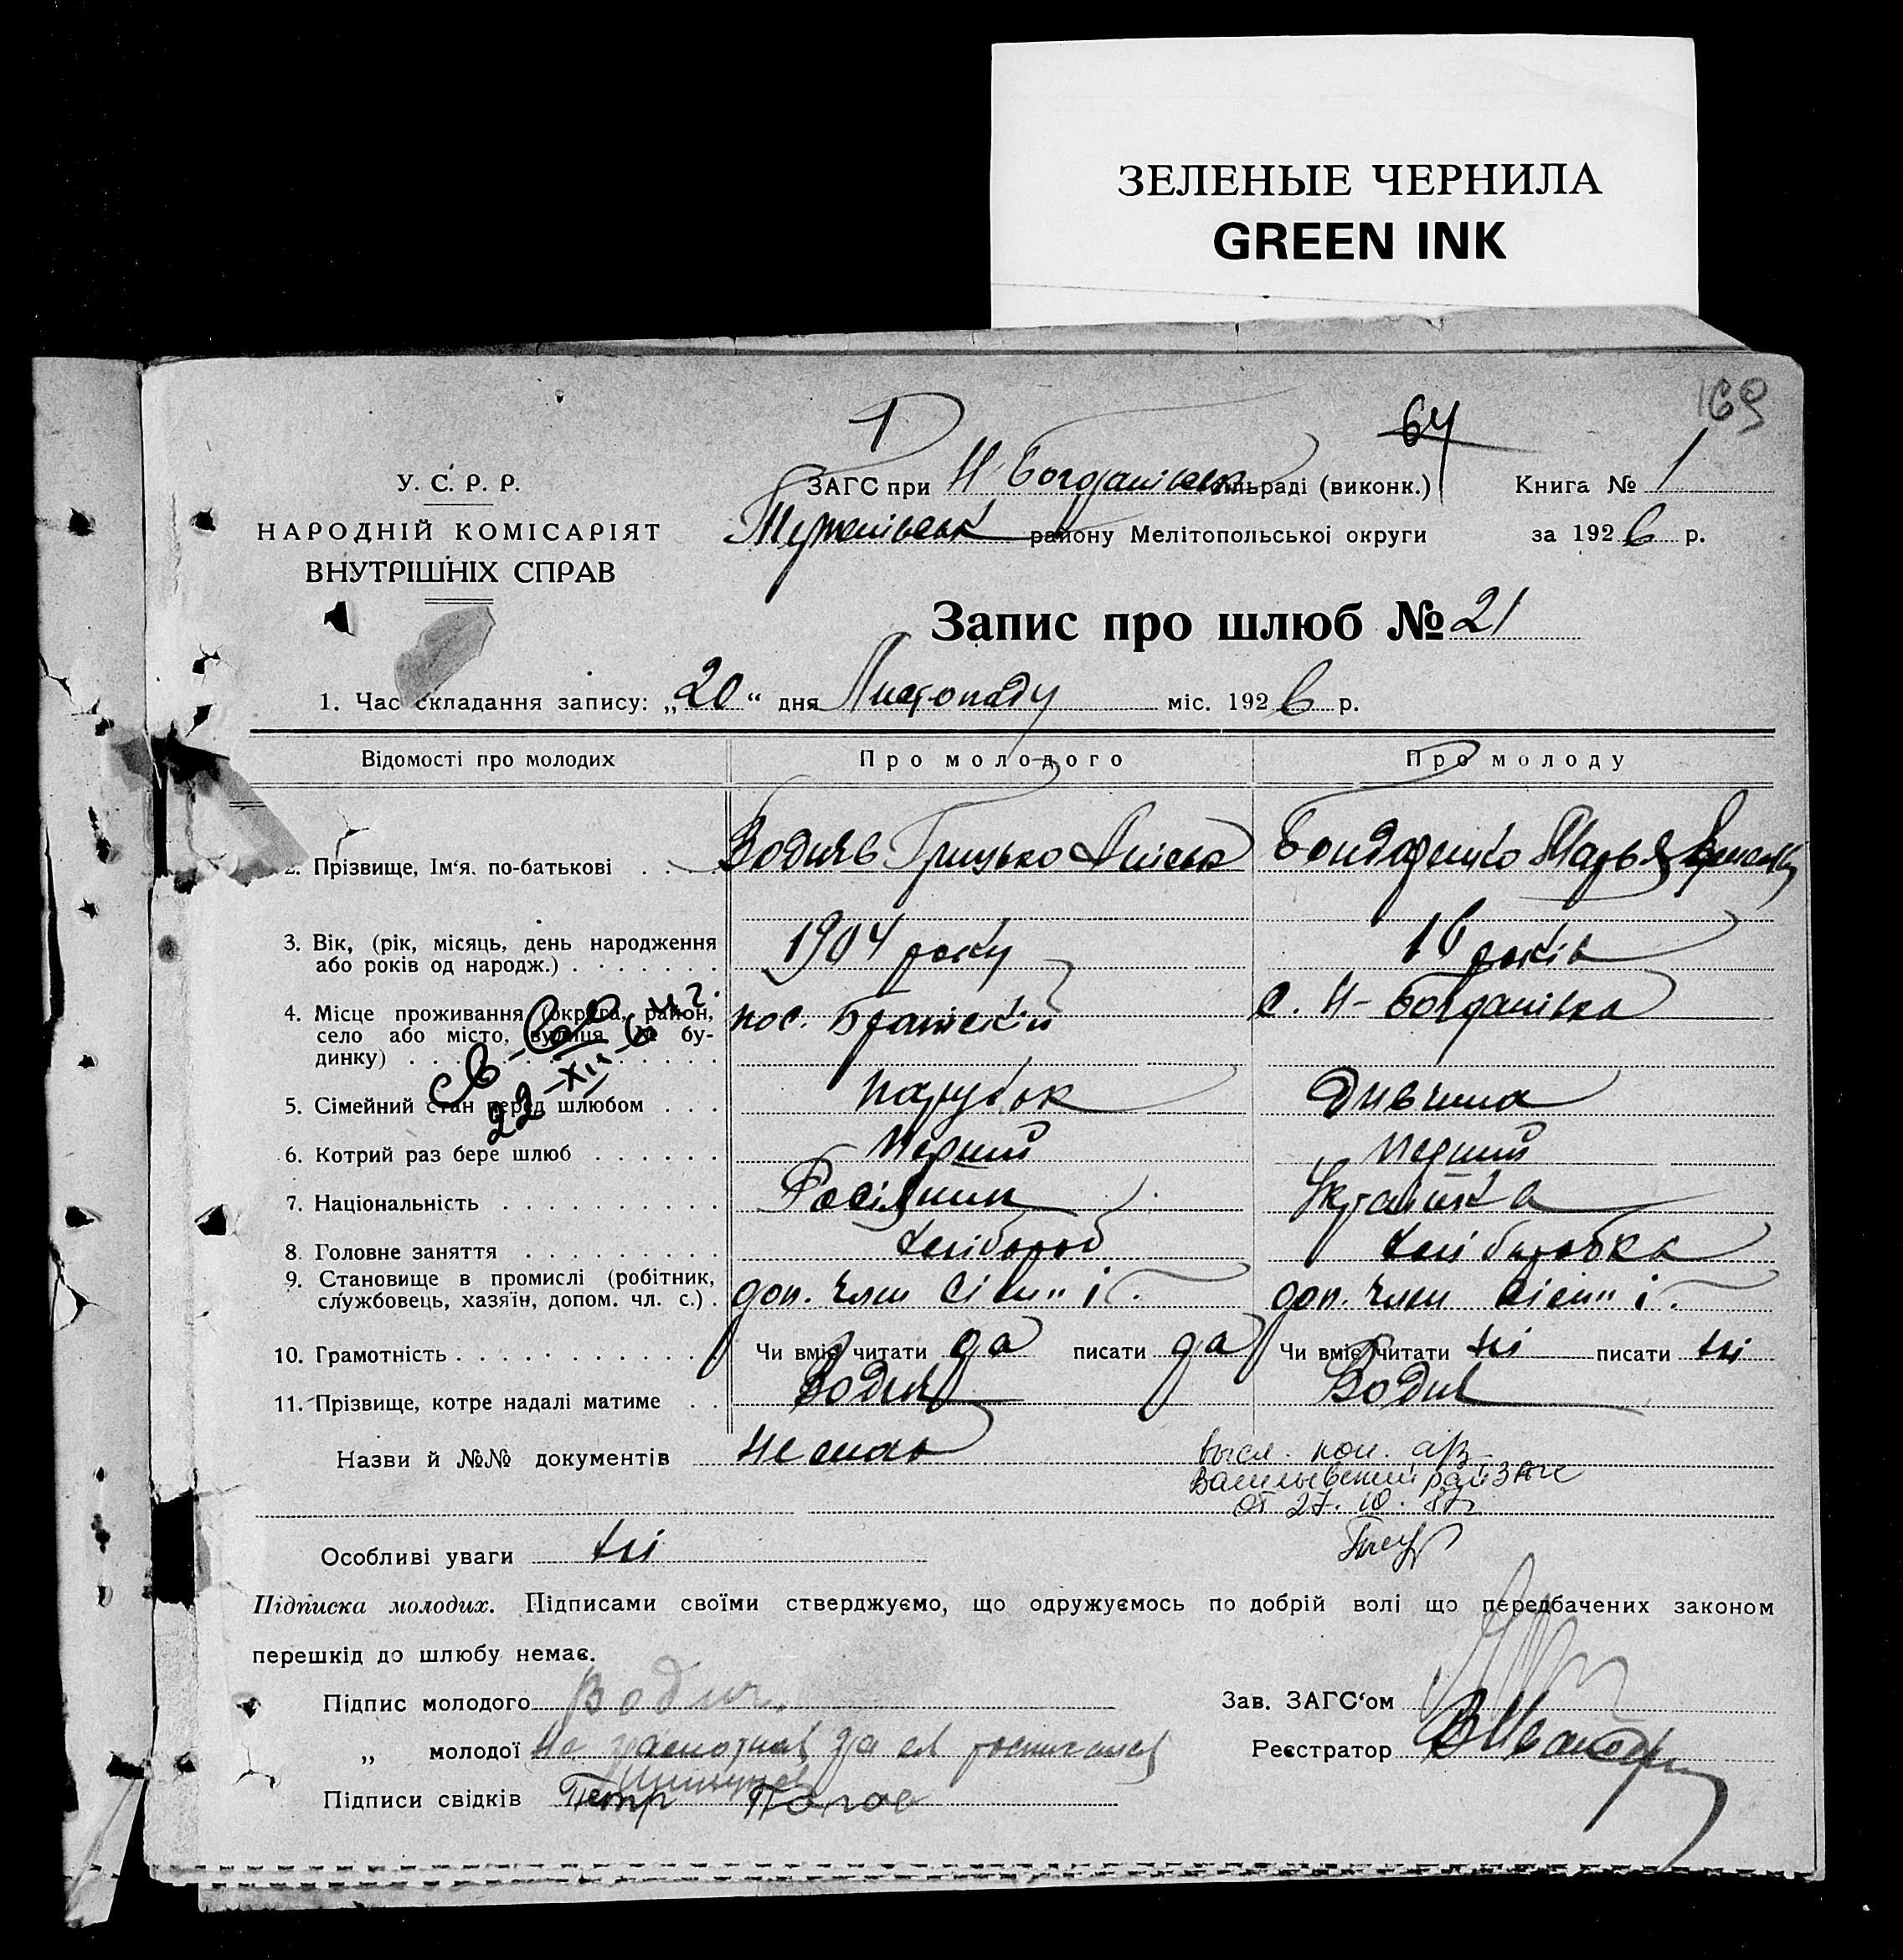 ЗЕЛЕНЫЕ ЧЕРНИЛА
GREEN INK
169
1
64
У. С. Р. Р.
НАРОДНІЙ КОМІСАРІЯТ
ВНУТРІШНІХ СПРАВ
ЗАГС при Н Богданівськ сільраді (виконк.)
району Мелітопольської округи
Книга № 1
за 1926 р.
Запис про шлюб № 21
1. Час складання запису: „20“ дня Листопаду міс. 1926 р.
Відомості про молодих
Про молодого
Про молоду
2. Прізвище, Ім‘я, по-батькові . . . .
Грицько
Бондаренко Марья
3. Вік, (рік, місяць, день народження
або років од народж.) . . . . . . .
1904 року
16 років
4. Місце проживання (округа, район,
село або місто, вулиця № бу-
динку) . . . . . . . . . . . . . .
пос. Братский
с. Н-Богданівка
22-XII-
5. Сімейний стан перед шлюбом . . .
парубок
Дивчина
6. Котрий раз бере шлюб . . . . . .
Перший
Перший
7. Національність . . . . . . . . . .
Росіянин
Українка
8. Головне заняття . . . . . . . . .
хлібороб
хліборобка
9. Становище в промислі (робітник,
службовець, хазяїн, допом. чл. с.) .
доп. член сім"ї.
доп. член сім"ї.
10. Грамотність . . . . . . . . . . . .
Чи вміє читати да писати да
Чи вміє читати ні писати ні
11. Прізвище, котре надалі матиме . .
Водич
Назви й №№ документів немає
высл. коп. а/з
Васильевский райЗАГС
от 27.10.87г
Особливі уваги ні
Підписка молодих. Підписами своїми стверджуємо, що одружуємось по добрій волі що передбачених законом
перешкід до шлюбу немає.
Підпис молодого Водич.
Зав. ЗАГС‘ом
„ молодої
Реєстратор
Підписи свідків Петр